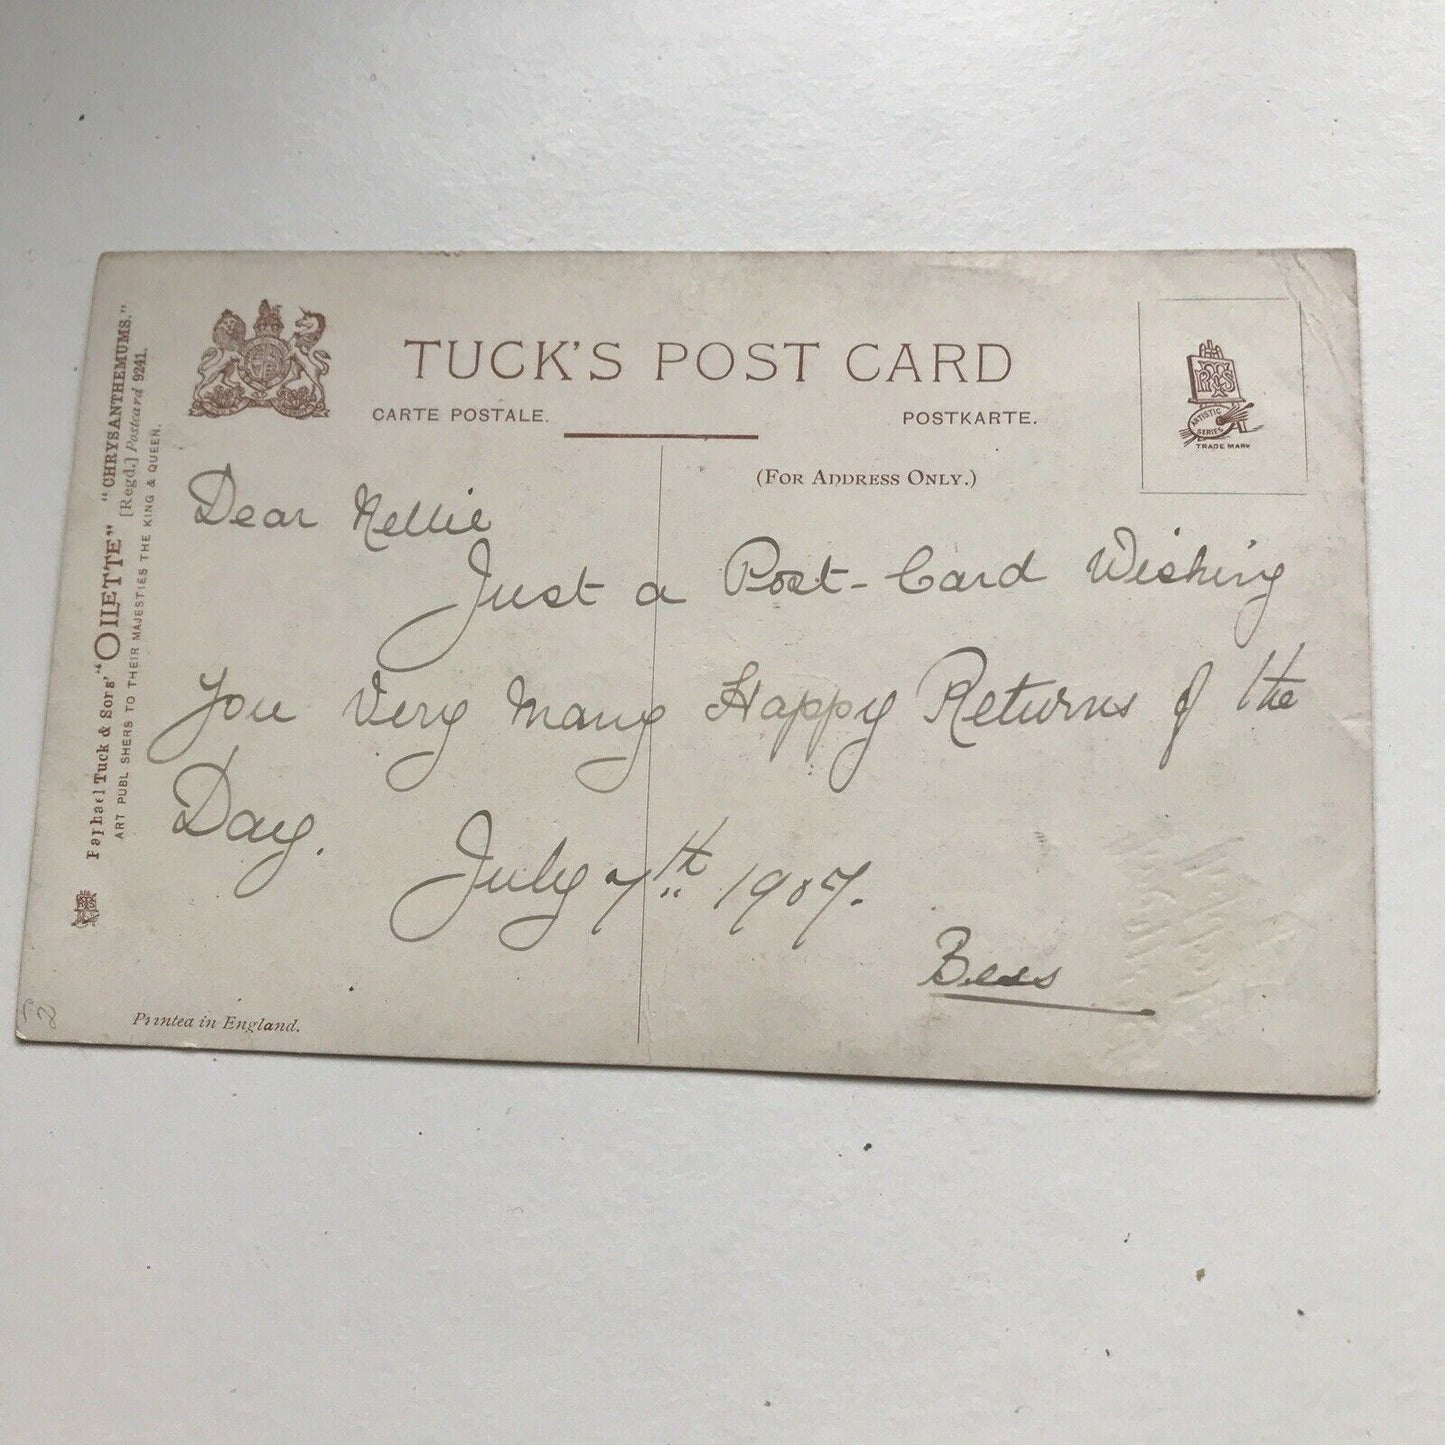 TUCK'S POST CARD
CARTE POSTALE. POSTKARTE.
(FOR ADDRESS ONLY.)
ARTISTIC SERIES
TRADE MARK
Raphael Tuck & Sons' "OILETTE" "CHRYSANTHEMUMS."
[Regd.] Postcard 9241.
ART PUBLISHERS TO THEIR MAJESTIES THE KING & QUEEN.
Dear Nellie
Just a Post-Card Wishing
You Very Many Happy Returns of the
Day.
July 7th 1907.
Bess
Printed in England.